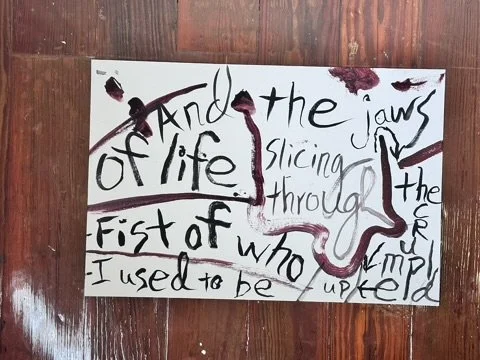 And the jaws
of life
slicing
through
the
CRU
mpl
ed
- up
-Fist of who
-I used to be